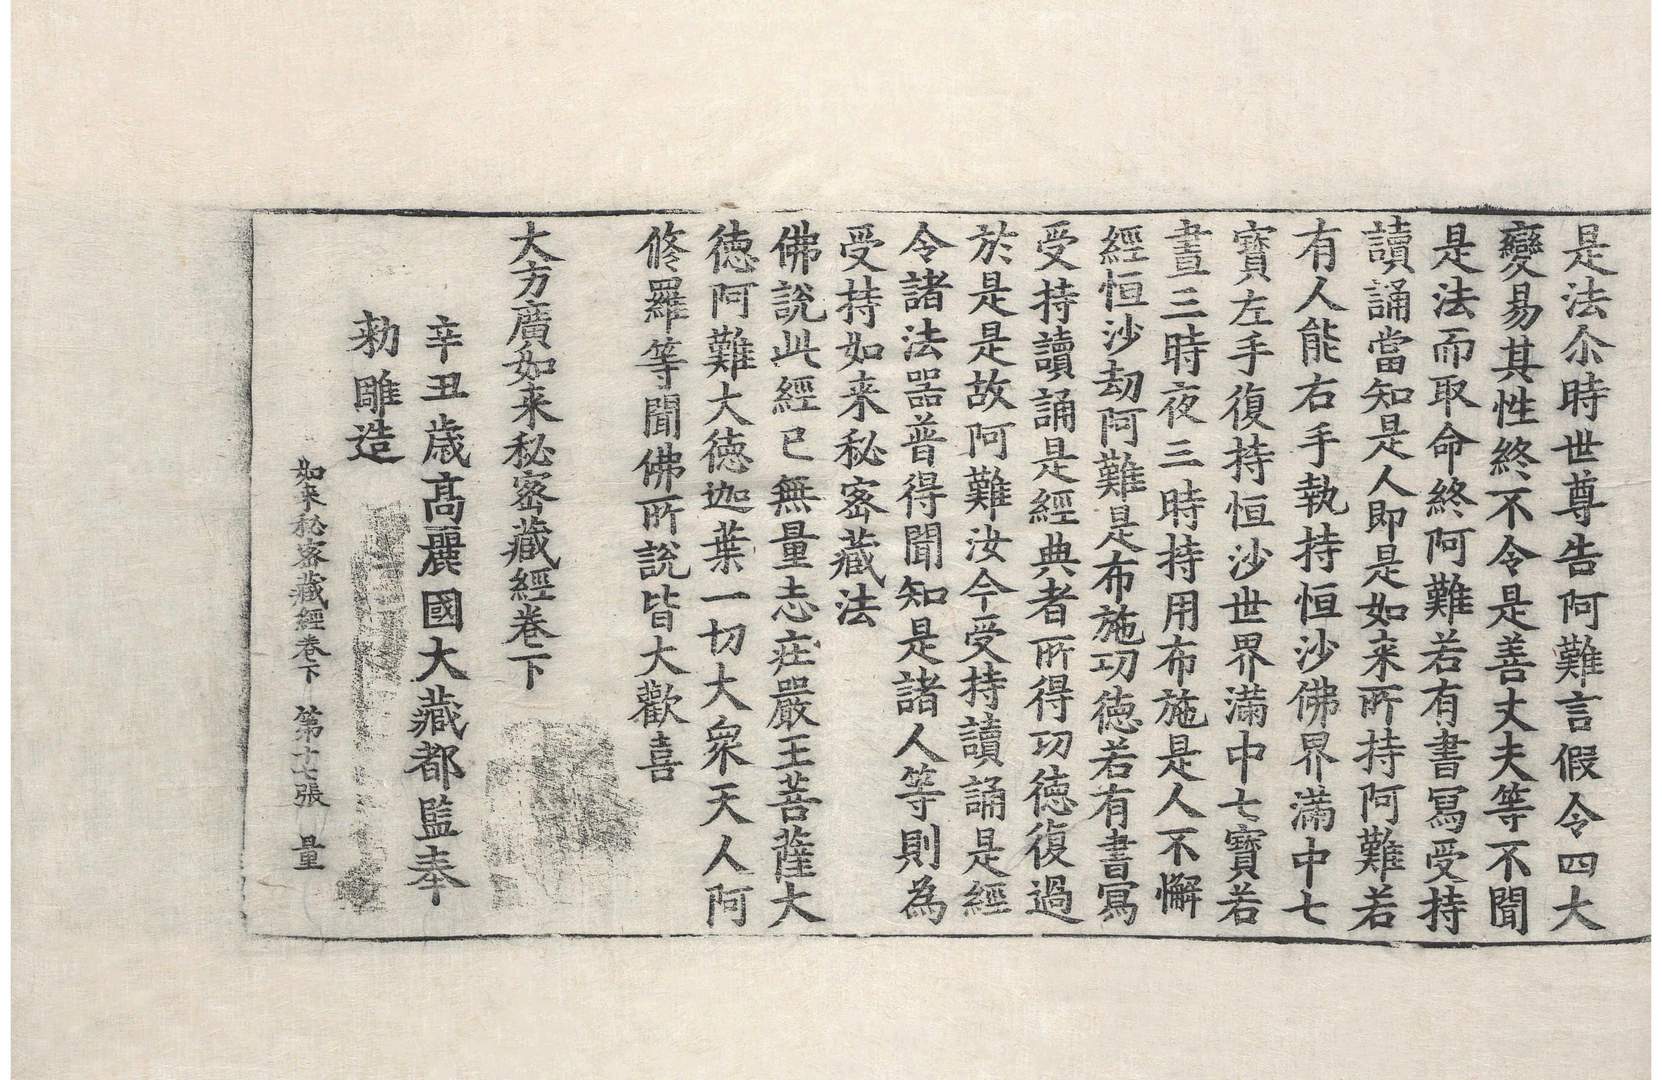 是法尒時世尊告阿難言假令四大
變易其性終不令是善丈夫等不聞
是法而取命終阿難若有書冩受持
讀誦當知是人即是如来所持阿難若
有人能右手執持恒沙佛界滿中七
寶左手復持恒沙世界滿中七寶若
晝三時夜三時持用布施是人不懈
經恒沙劫阿難是布施功德若有書冩
受持讀誦是經典者所得功德復過
於是是故阿難汝今受持讀誦是經
令諸法器普得聞知是諸人等則為
受持如来秘密藏法
佛說此經已無量志莊嚴王菩薩大
德阿難大德迦葉一切大衆天人阿
修羅等聞佛所說皆大歡喜
大方廣如来秘密藏經卷下
辛丑歲高麗國大藏都監奉
勑雕造
如来秘密藏經卷下 第十七張 量